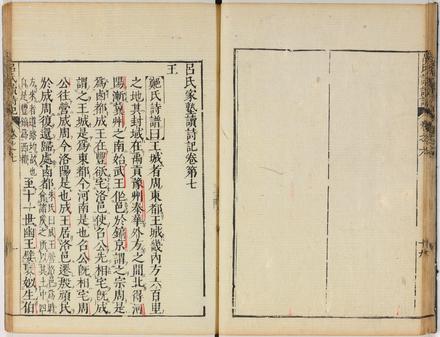 呂氏家塾讀詩記卷第七
王
鄭氏詩譜曰王城者周東都王城畿内方六百里
之地其封域在禹貢豫州泰華外方之間北得河
陽漸冀州之南始武王作邑於鎬京謂之宗周是
為西都成王在豐欲宅洛邑使召公先相宅既成
謂之王城是為東都今河南是也召公既相宅周
公往營成周今洛陽是也成王居洛邑遷殷頑民
於成周復還歸處西都
至于十一世幽王嬖襃姒生伯